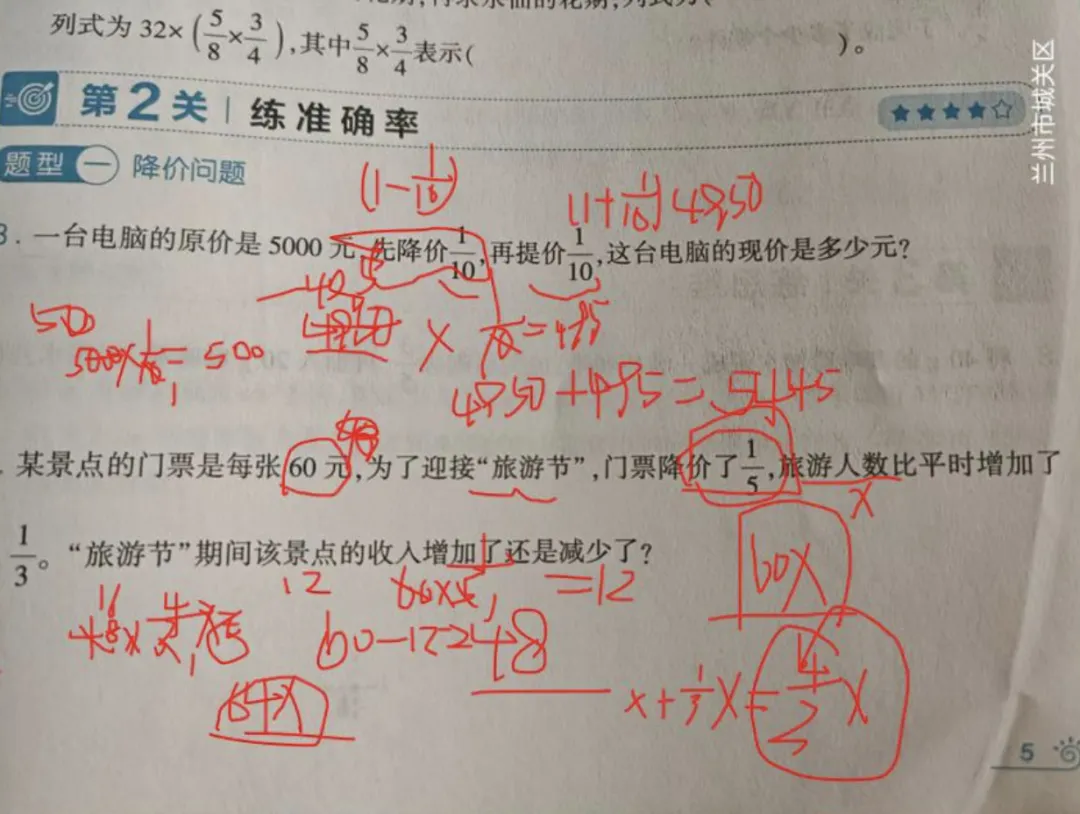 列式为 32×(5/8×3/4),其中5/8×3/4表示( )。
第2关 练准确率
题型一 降价问题
(1-1/10)
(1+1/10)4950
3. 一台电脑的原价是 5000 元,先降价1/10,再提价1/10,这台电脑的现价是多少元?
500
5000×1/10=500
4950+495=5445
. 某景点的门票是每张 60 元,为了迎接“旅游节”,门票降价了1/5,旅游人数比平时增加了
x
1/3。“旅游节”期间该景点的收入增加了还是减少了?
60x
12
60×1/5=12
16
60-12=48
64x
x+1/3x=4/3x
5
兰州市城关区